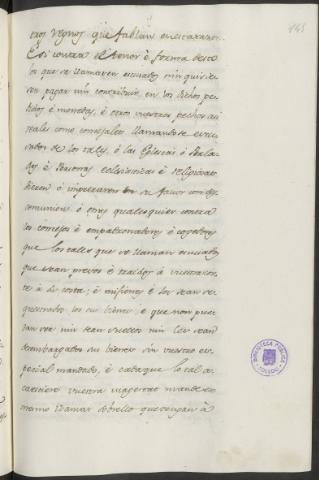 145
tros regnos que fablan en esta razon.
E si contra el tenor é forma de es
los que se llamaren escusados nin quisie
ren pagar nin contribuir en los dichos pe
didos é monedas, é otros vuestros pechos asi
reales como concejales llamandose escu
sados de los tales, ó las Eglesias ó Perla
dos é Personas eclesiasticas é religiosas
ficieren ó impetraren en su favor cartas de
comunion é otras qualesquier contra
los concejos é empadronadores é cogedores
que los tales que se llaman escusados
que sean presos é traidos á vuestra cor
te á su costa, é misiones é les sean se
questrados los sus bienes, é que non pue
dan ser nin sean sueltos nin les sean
desembargados sus bienes sin vuestro es
pecial mandado, é cada que lo tal a
caesciere vuestra magestad mande eso
mesmo llamar sobrello que vengan á
BIBLIOTECA PUBLICA
TOLEDO